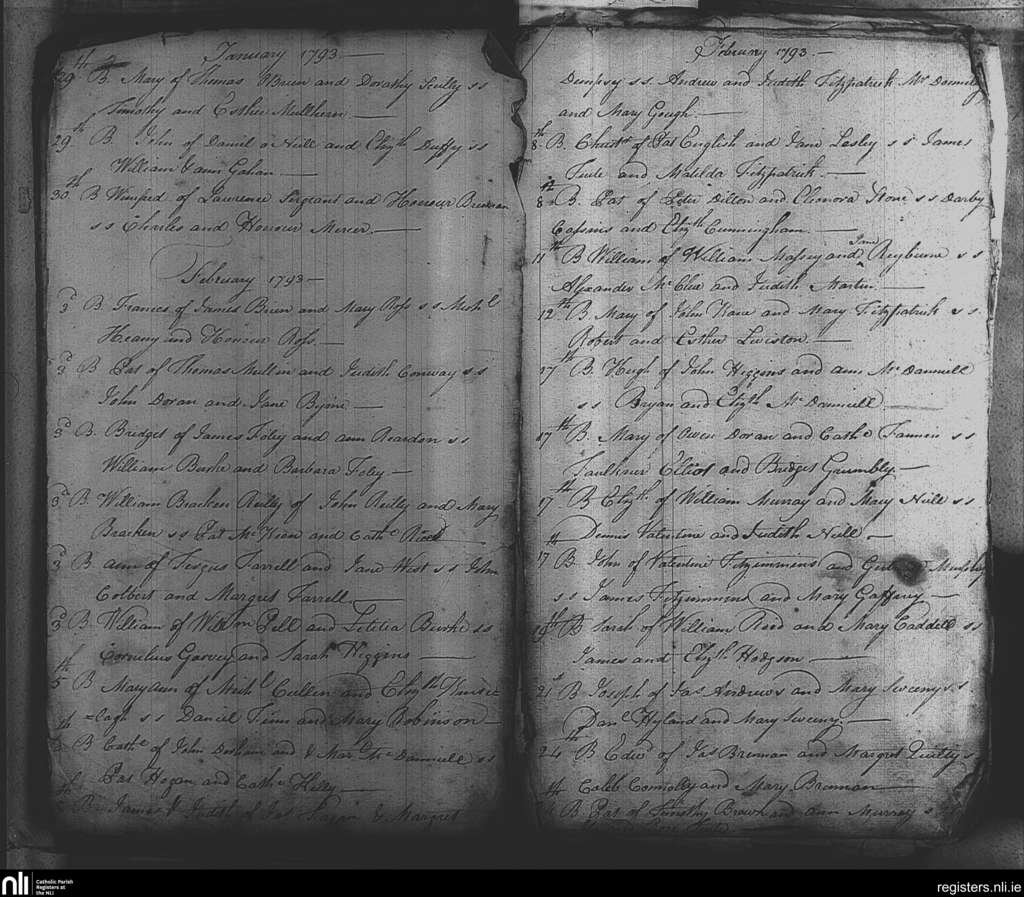 January 1793
29th B. Mary of Thomas Brien and Dorothy Scully ss
Timothy and Esther Mullheron
29th B. John of Daniel o Neill and Elizth Duffy ss
William & ann Gahan
30th B Winifred of Lawrence Sergeant and Honour Brennan
ss Charles and Honour Mercer
February 1793
3d B. Frances of James Brien and Mary Ross ss Michl
Heany and Honour Ross
3d B Pat of Thomas Mullin and Judith Conway ss
John Doran and Jane Byrne
3d B. Bridget of James Foley and ann Reardon ss
William Burke and Barbara Foley
3d B William Bracken Reilly of John Reilly and Mary
Bracken ss Pat Mc and Cathe
3d B ann of Fergus Farrell and Jane West ss John
Colbert and Margret Farrell
3d B William of Willm Pell and Letitia Burke ss
Cornelius Garvey and Sarah Higgins
5th B Maryann of Michl Cullen and Elizth
ss Daniel Finn and Mary Robinson
B Cathe of John and Mc Danniell ss
Pat Hogan and Cathe Kelly
B. James & Judith of Jas & Margret
February 1793
Dempsey ss. Andrew and Judith Fitzpatrick Mr
and Mary Gough
8th B. Christr of Pat English and Jane Lesley ss James
and Matilda Fitzpatrick
8th B. Pat of Peter Dillon and Eleonora Stone ss Darby
and Elizth Cunningham
11th B William of William Massey and Jane Reyburne ss
Alexander Mc Clue and Judith Martin
12th B. Mary of John Kane and Mary Fitzpatrick ss
Robert and Esther Liviston
17th B. Hugh of John Higgins and ann Mc Dannell
ss Bryan and Elizth Mc Dannell
17th B. Mary of Owen Doran and Cathe Fannon ss
Faulkner Elliot and Bridget Grumbly
17th B Elizth of William Murray and Mary Neill ss
Dennis Valentine and Judith Neill
17th B. John of Valentine Fitzimmins and
ss James Fitzimmins and Mary Gaffeny
19th B Sarah of William Reed and Mary Caddell ss
James and Elizth Hodgson
21st B Joseph of Jas Andrews and Mary Sweeny ss
Danl Hyland and Mary Sweeny
24th B Edwd of Jas Brennan and Margret Quilty s
Caleb Connolly and Mary Brennan
B Pat of Timothy Brown and ann Murray s
nli
Catholic Parish
Registers at
the NLI
registers.nli.ie